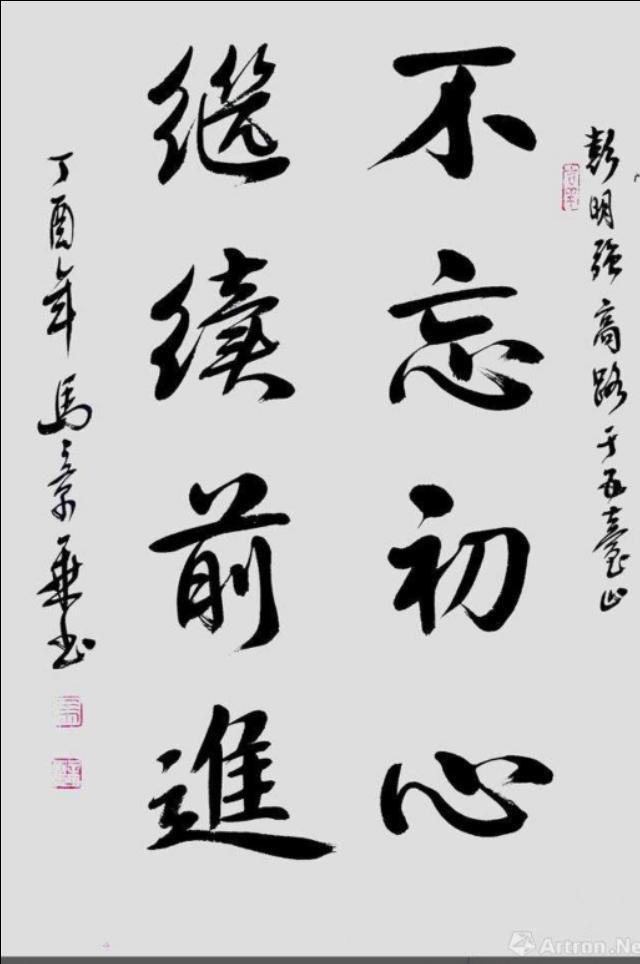 彭明强高路于五臺山
不忘初心
继續前進
丁酉年馬景乘书
Artron.Ne